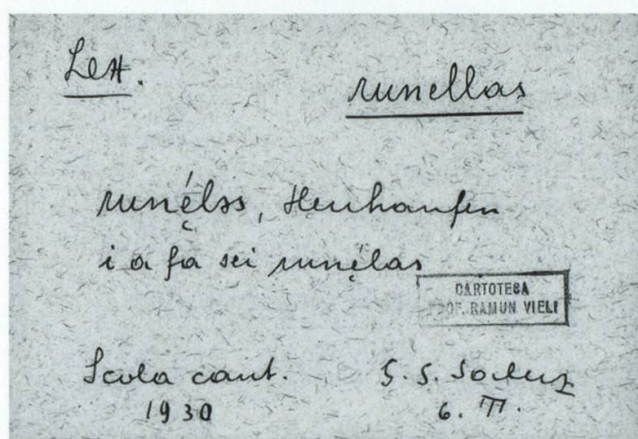 Lex. runellas
runélas, Heuhaufen
i a fa sei runélas
CARTOTECA
PROF. RAMUN VIELI
Scola cant.
1930 6. TT.